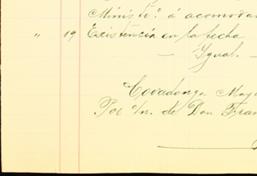 Minist.º á acomodar
" 19 Existencia en la fecha
— Igual —
Covadonga May
Por /n. de Don Fran